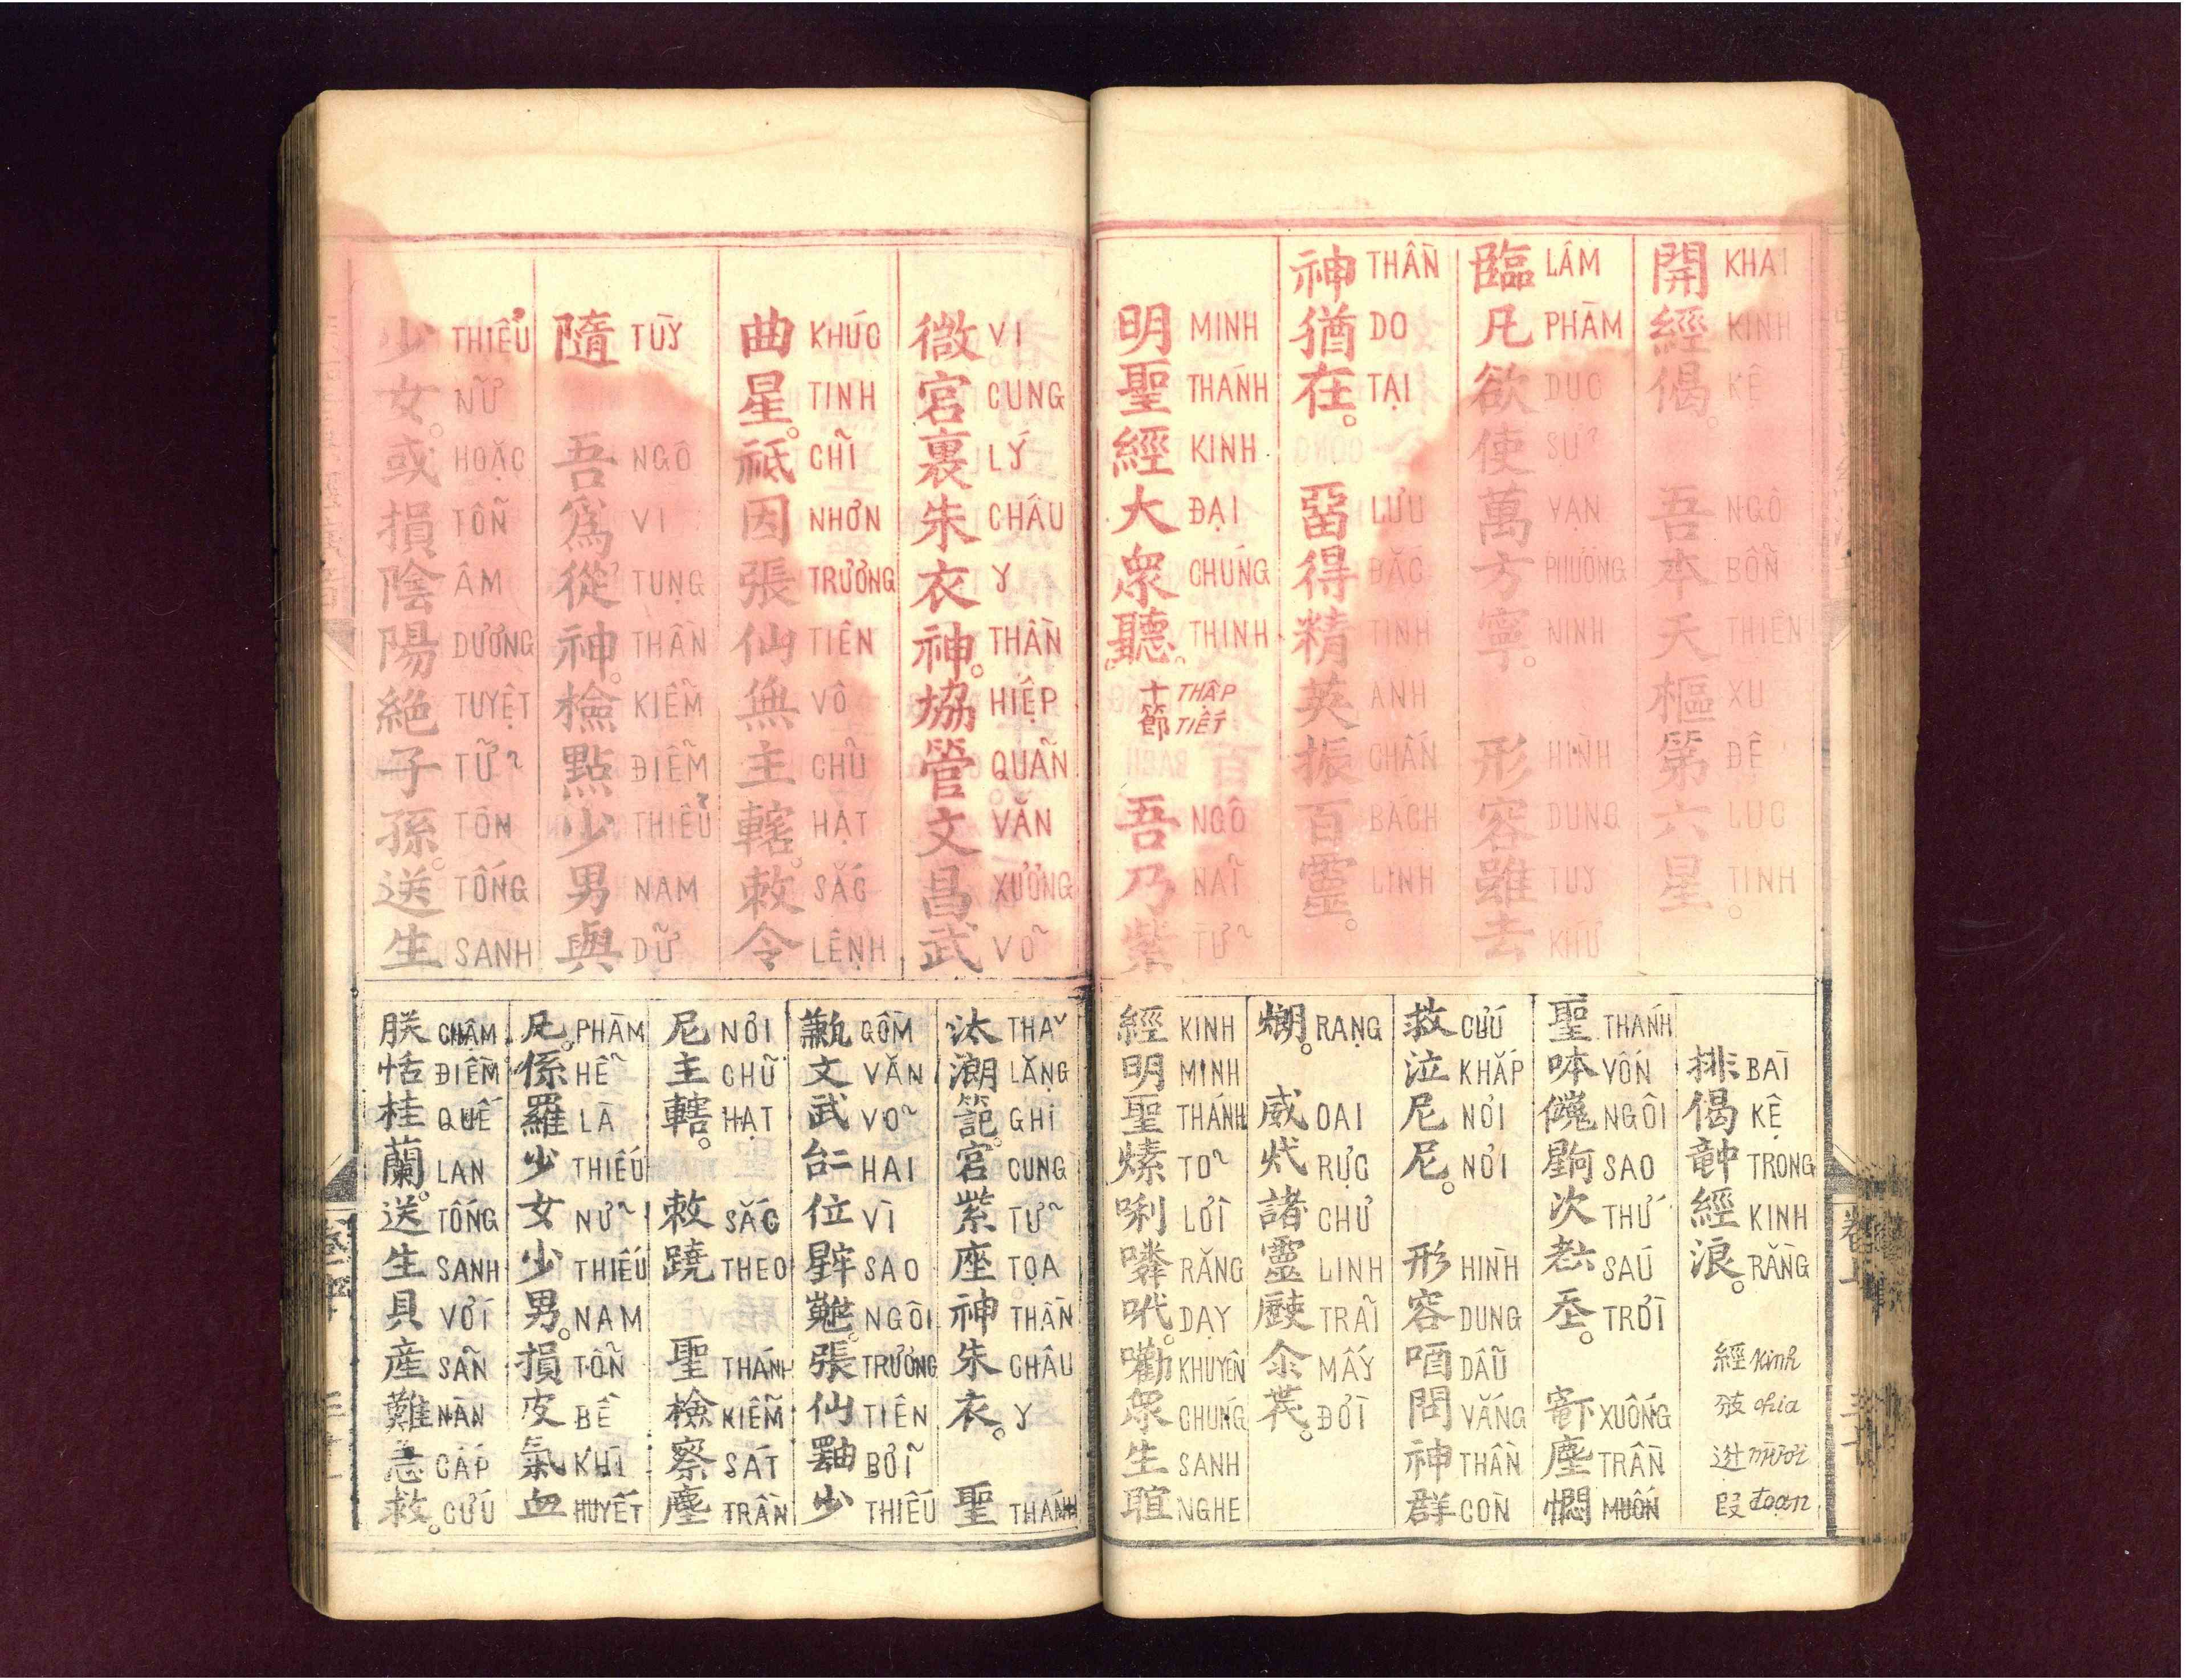 開 KHAI 經 KINH 偈 KỆ 。 吾 NGÔ 本 BỔN 天 THIÊN 樞 XU 第 ĐỆ 六 LUC 星 TINH 。
臨 LÂM 凡 PHÀM 欲 DUC 使 SỬ 萬 VẠN 方 PHƯƠNG 寧 NINH 。 形 HÌNH 容 DUNG 雖 TUY 去 KHỨ
神 THẦN 猶 DO 在 TẠI 。 畱 LƯU 得 ĐẮC 精 TINH 英 ANH 振 CHẤN 百 BÁCH 靈 LINH 。
明 MINH 聖 THÁNH 經 KINH 大 ĐẠI 眾 CHÚNG 聽 THỊNH 。 十 THẬP 節 TIẾT 吾 NGÔ 乃 NAĨ 紫 TỮ
排 BAÌ 偈 KỆ 𥪝 TRONG 經 KINH 浪 RẰNG 。 經 Kinh chia mười 段 đoạn
聖 THÁNH 呠 VỐN NGÔI SAO 次 THỨ SAÚ TRỜI 。 XUỐNG 塵 TRẦN 憫 MUỐN
救 CỨU 泣 KHẮP 尼 NƠI 尼 NƠI 。 形 HÌNH 容 DUNG 唒 DẪU 問 VẮNG 神 THẦN 群 CÒN
RẠNG 。 威 OAI RỰC 諸 CHƯ 靈 LINH TRAĨ MẤY ĐỜI 。
經 KINH 明 MINH 聖 THÁNH TỎ 唎 LỜI RẰNG 吪 DẠY 。 勸 KHUYÊN 眾 CHÚNG 生 SANH NGHE
微 VI 宮 CUNG 裏 LÝ 朱 CHÂU 衣 Y 神 THẦN 。 協 HIỆP 管 QUẢN 文 VĂN 昌 XƯƠNG 武 VÕ
曲 KHÚC 星 TINH 。 祗 CHĨ 因 NHƠN 張 TRƯƠNG 仙 TIÊN 無 VÔ 主 CHỦ 轄 HẠT 。 敕 SẮC 令 LỆNH
隨 TÙY 吾 NGÔ 爲 VI 從 TUNG 神 THẦN 。 檢 KIỂM 點 ĐIỂM 少 THIẾU 男 NAM 與 DỮ
少 THIẾU 女 NỮ 。 或 HOẶC 損 TỔN 陰 ÂM 陽 DƯƠNG 絕 TUYỆT 子 TỬ 孫 TÔN 。 送 TỐNG 生 SANH
汰 THAY LẶNG GHI 。 宮 CUNG 紫 TỬ 座 TỌA 神 THẦN 朱 CHÂU 衣 Y 。 聖 THÁNH
GỒM 文 VĂN 武 VÕ HAI 位 VÌ SAO NGÔI 。 張 TRƯƠNG 仙 TIÊN BỞI 少 THIẾU
尼 NƠI 主 CHỦ 轄 HẠT 。 敕 SẮC 蹺 THEO 聖 THÁNH 檢 KIỂM 察 SÁT 塵 TRẦN
凡 PHÀM 。 係 HỄ 羅 LÀ 少 THIẾU 女 NỮ 少 THIẾU 男 NAM 。 損 TỔN 皮 BỀ 氣 KHÍ 血 HUYẾT
朕 CHẬM 恬 ĐIỀM 桂 QUẾ 蘭 LAN 。 送 TỐNG 生 SANH 貝 VỚI 産 SẢN 難 NÀN 急 CẤP 救 CỨU 。